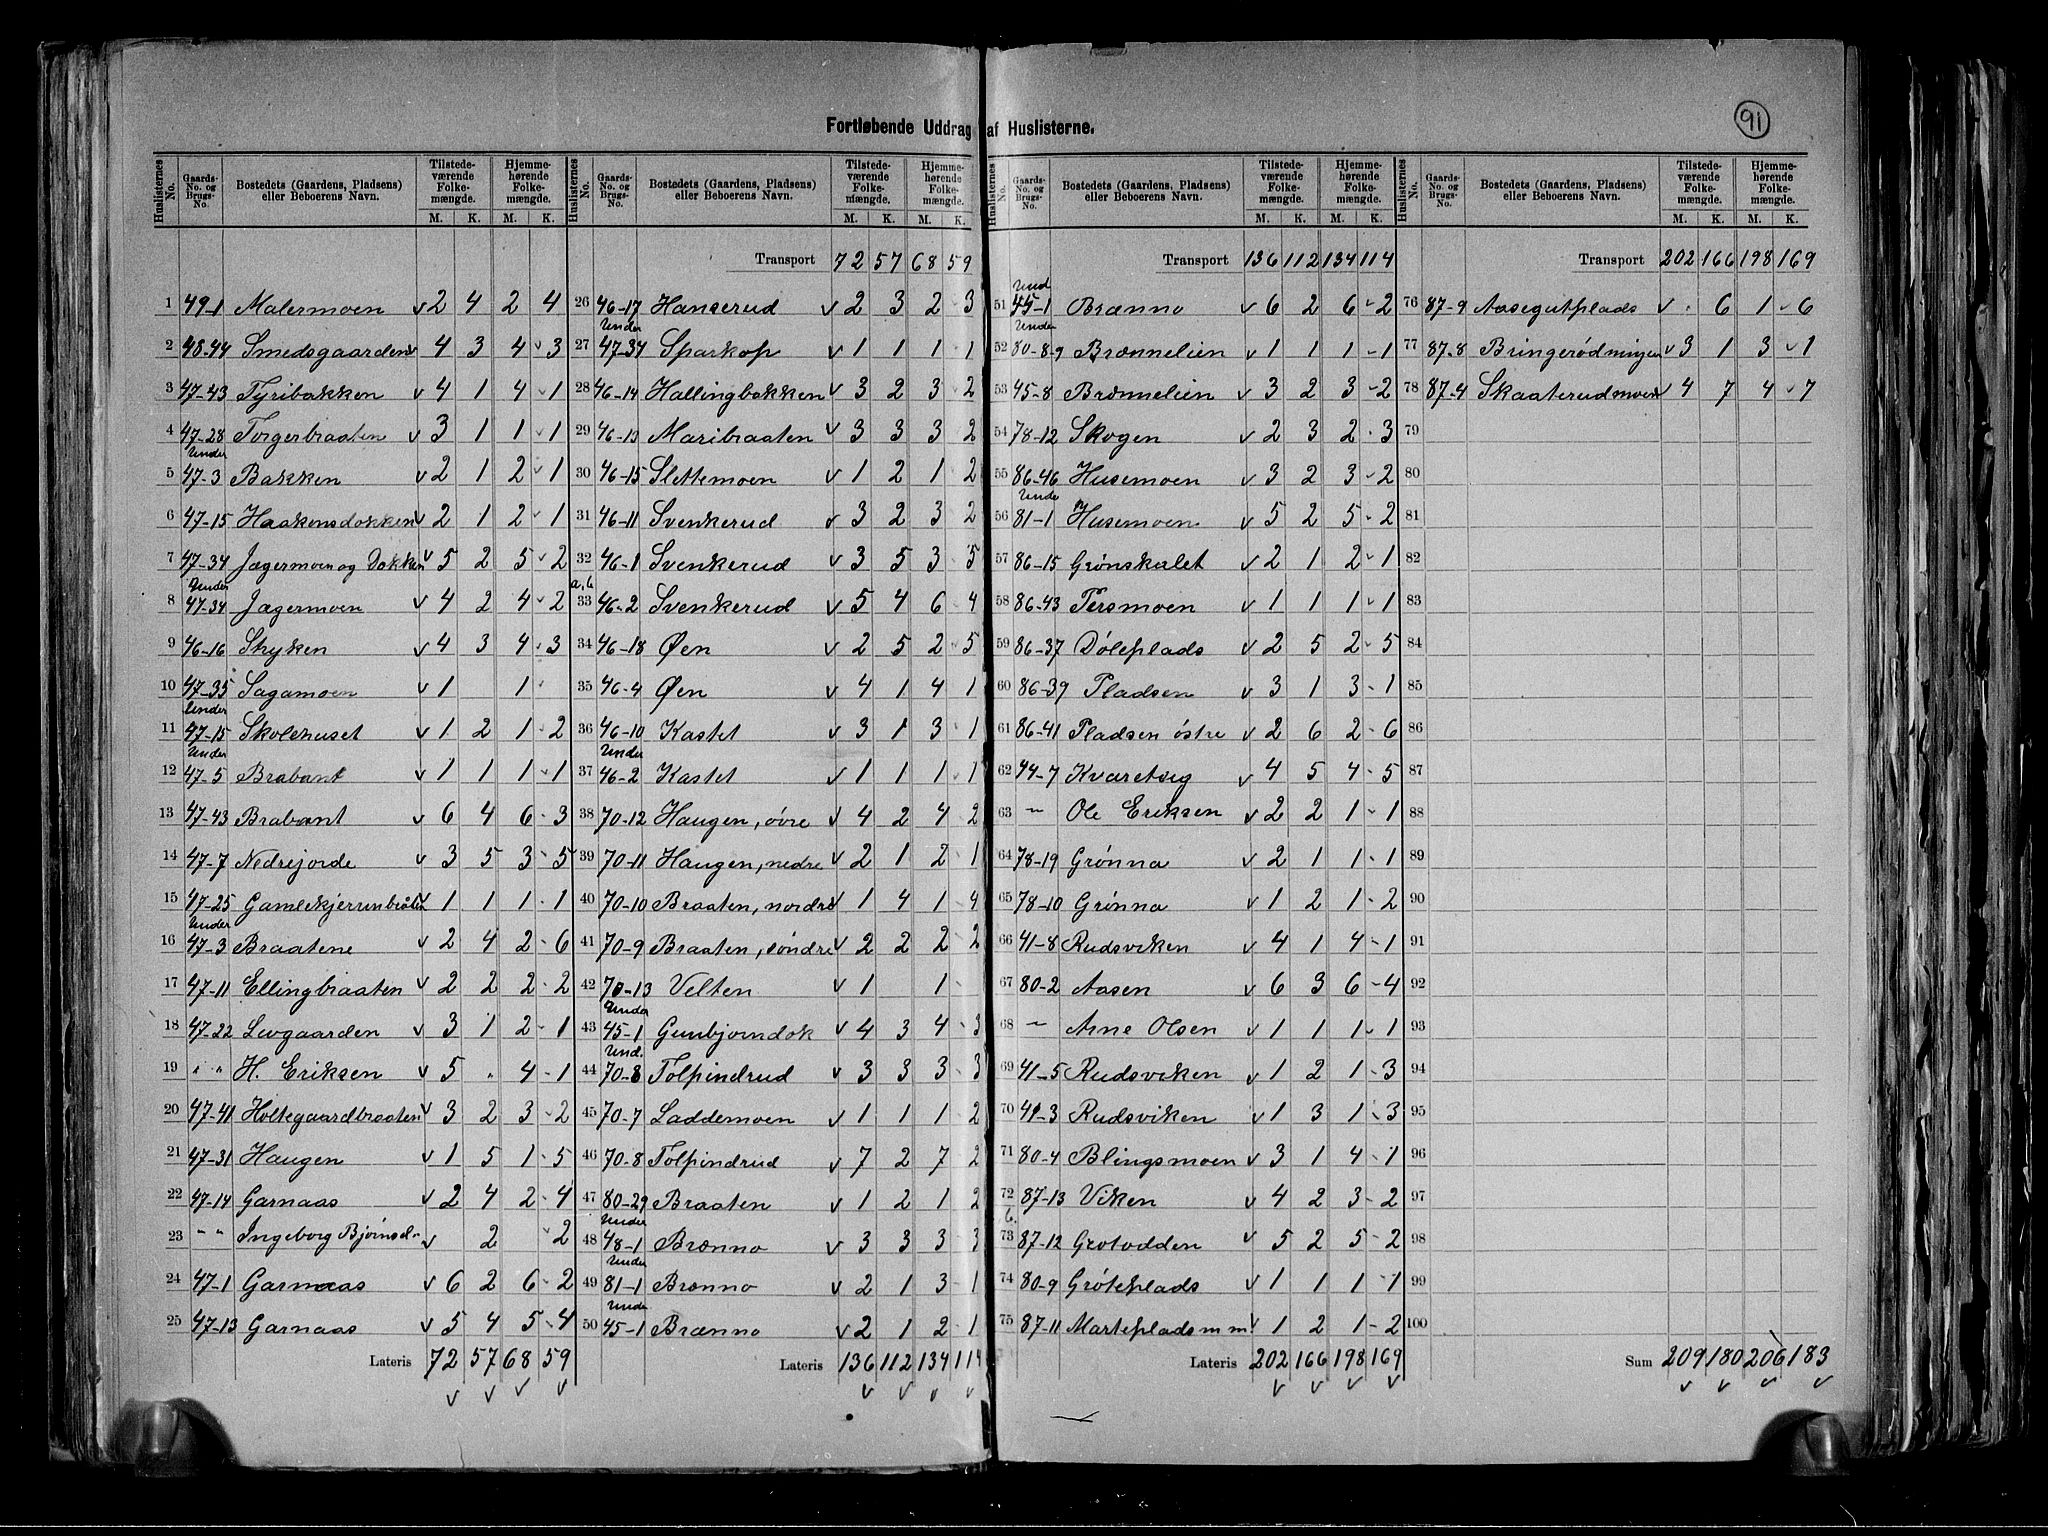 Fortløbende Uddrag af Huslisterne.
91
Huslisternes No. | Gaards-No. og Brugs-No. | Bostedets (Gaardens, Pladsens) eller Beboerens Navn. | Tilstedeværende Folkemængde. M. K. | Hjemmehørende Folkemængde. M. K.
1 49-1 Malermoen v 2 4 2 4
2 48-44 Smedsgaarden v 4 3 4 3
3 47-43 Tyribakken v 4 1 4 1
4 47-28 Torgerbraaten v 3 1 1 1
5 Under 47-3 Bakken v 2 1 2 1
6 47-15 Haakensdokken v 2 1 2 1
7 47-34 Jægermoen og Dokken v 5 2 5 2
8 Under 47-34 Jægermoen v 4 2 4 2
9 46-16 Stryken v 4 3 4 3
10 47-35 Sagamoen v 1 1
11 Under 47-15 Skolehuset v 1 2 1 2
12 Under 47-5 Brabant v 1 1 1 1
13 47-43 Brabant v 6 4 6 3
14 47-7 Nedrejorde v 3 5 3 5
15 47-25 v 1 1 1 1
16 Under 47-3 Braatene v 2 4 2 6
17 47-11 Ellingbraaten v 2 2 2 2
18 47-22 Levgaarden v 3 1 2 1
19 " " H. Eriksen v 5 " 4 1
20 47-41 Holtegaardbraaten v 3 2 3 2
21 47-31 Haugen v 1 5 1 5
22 47-14 Garnaas v 2 4 2 4
23 " " Ingeborg Bjørnsd. v 2 2
24 47-1 Garnaas v 6 2 6 2
25 47-13 Garnaas v 5 4 5 4
Lateris 72 57 68 59
Huslisternes No. | Gaards-No. og Brugs-No. | Bostedets (Gaardens, Pladsens) eller Beboerens Navn. | Tilstedeværende Folkemængde. M. K. | Hjemmehørende Folkemængde. M. K.
Transport 72 57 68 59
26 46-17 Hanserud v 2 3 2 3
27 Under 47-34 Sparkop v 1 1 1 1
28 46-14 Hallingbakken v 3 2 3 2
29 46-13 Maribraaten v 3 3 3 2
30 46-15 Slettemoen v 1 2 1 2
31 46-11 Svenkerud v 3 2 3 2
32 46-1 Svenkerud v 3 5 3 5
a, b 33 46-2 Svenkerud v 5 4 6 4
34 46-18 Øen v 2 5 2 5
35 46-4 Øen v 4 1 4 1
36 46-10 Kastet v 3 1 3 1
37 Under 46-2 Kastet v 1 1 1 1
38 70-12 Haugen, øvre v 4 2 4 2
39 70-11 Haugen, nedre v 2 1 2 1
40 70-10 Braaten, nordre v 1 4 1 4
41 70-9 Braaten, søndre v 2 2 2 2
42 70-13 Velten v 1 1
43 Under 45-1 Gunbjørndok v 4 3 4 3
44 Und. 70-8 Tolpindrud v 3 3 3 3
45 70-7 Laddemoen v 1 1 1 2
46 70-8 Tolpindrud v 7 2 7 2
47 80-29 Braaten v 1 2 1 2
48 Under 48-1 Brænno v 3 3 3 3
49 Under 81-1 Brænno v 2 1 3 1
50 Under 45-1 Brænno v 2 1 2 1
Lateris 136 112 134 114
Huslisternes No. | Gaards-No. og Brugs-No. | Bostedets (Gaardens, Pladsens) eller Beboerens Navn. | Tilstedeværende Folkemængde. M. K. | Hjemmehørende Folkemængde. M. K.
Transport 136 112 134 114
51 Und 45-1 Brænno v 6 2 6 2
52 Under 80-8-9 Brænnelien v 1 1 1 1
53 45-8 Brænnelien v 3 2 3 2
54 78-12 Skogen v 2 3 2 3
55 86-46 Husemoen v 3 2 3 2
56 Unde 81-1 Husemoen v 5 2 5 2
57 86-15 Grønskalet v 2 1 2 1
58 86-43 Persmoen v 1 1 1 1
59 86-37 Døleplads v 2 5 2 5
60 86-39 Pladsen v 3 1 3 1
61 86-41 Pladsen østre v 2 6 2 6
62 44-7 Kvaretsig v 4 5 4 5
63 — Ole Eriksen v 2 2 1 1
64 78-19 Grønna v 2 1 1 1
65 78-10 Grønna v 1 2 1 2
66 41-8 Rudsviken v 4 1 4 1
67 80-2 Aasen v 6 3 6 4
68 — Arne Olsen v 1 1 1 1
69 41-5 Rudsviken v 1 2 1 3
70 41-3 Rudsviken v 1 3 1 3
71 80-4 Blingsmoen v 3 1 4 1
72 87-13 Viken v 4 2 3 2
b. 73 87-12 Grotodden v 5 2 5 2
74 80-9 Grøteplads v 1 1 1 1
75 87-11 Marteplads m m. v 1 2 1 2
Lateris 202 166 198 169
Huslisternes No. | Gaards-No. og Brugs-No. | Bostedets (Gaardens, Pladsens) eller Beboerens Navn. | Tilstedeværende Folkemængde. M. K. | Hjemmehørende Folkemængde. M. K.
Transport 202 166 198 169
76 87-9 Aasegutplads v . 6 1 6
77 87-8 Bringerødningen v 3 1 3 1
78 87-4 Skaaterudmoen v 4 7 4 7
79
80
81
82
83
84
85
86
87
88
89
90
91
92
93
94
95
96
97
98
99
100
Sum 209 180 206 183